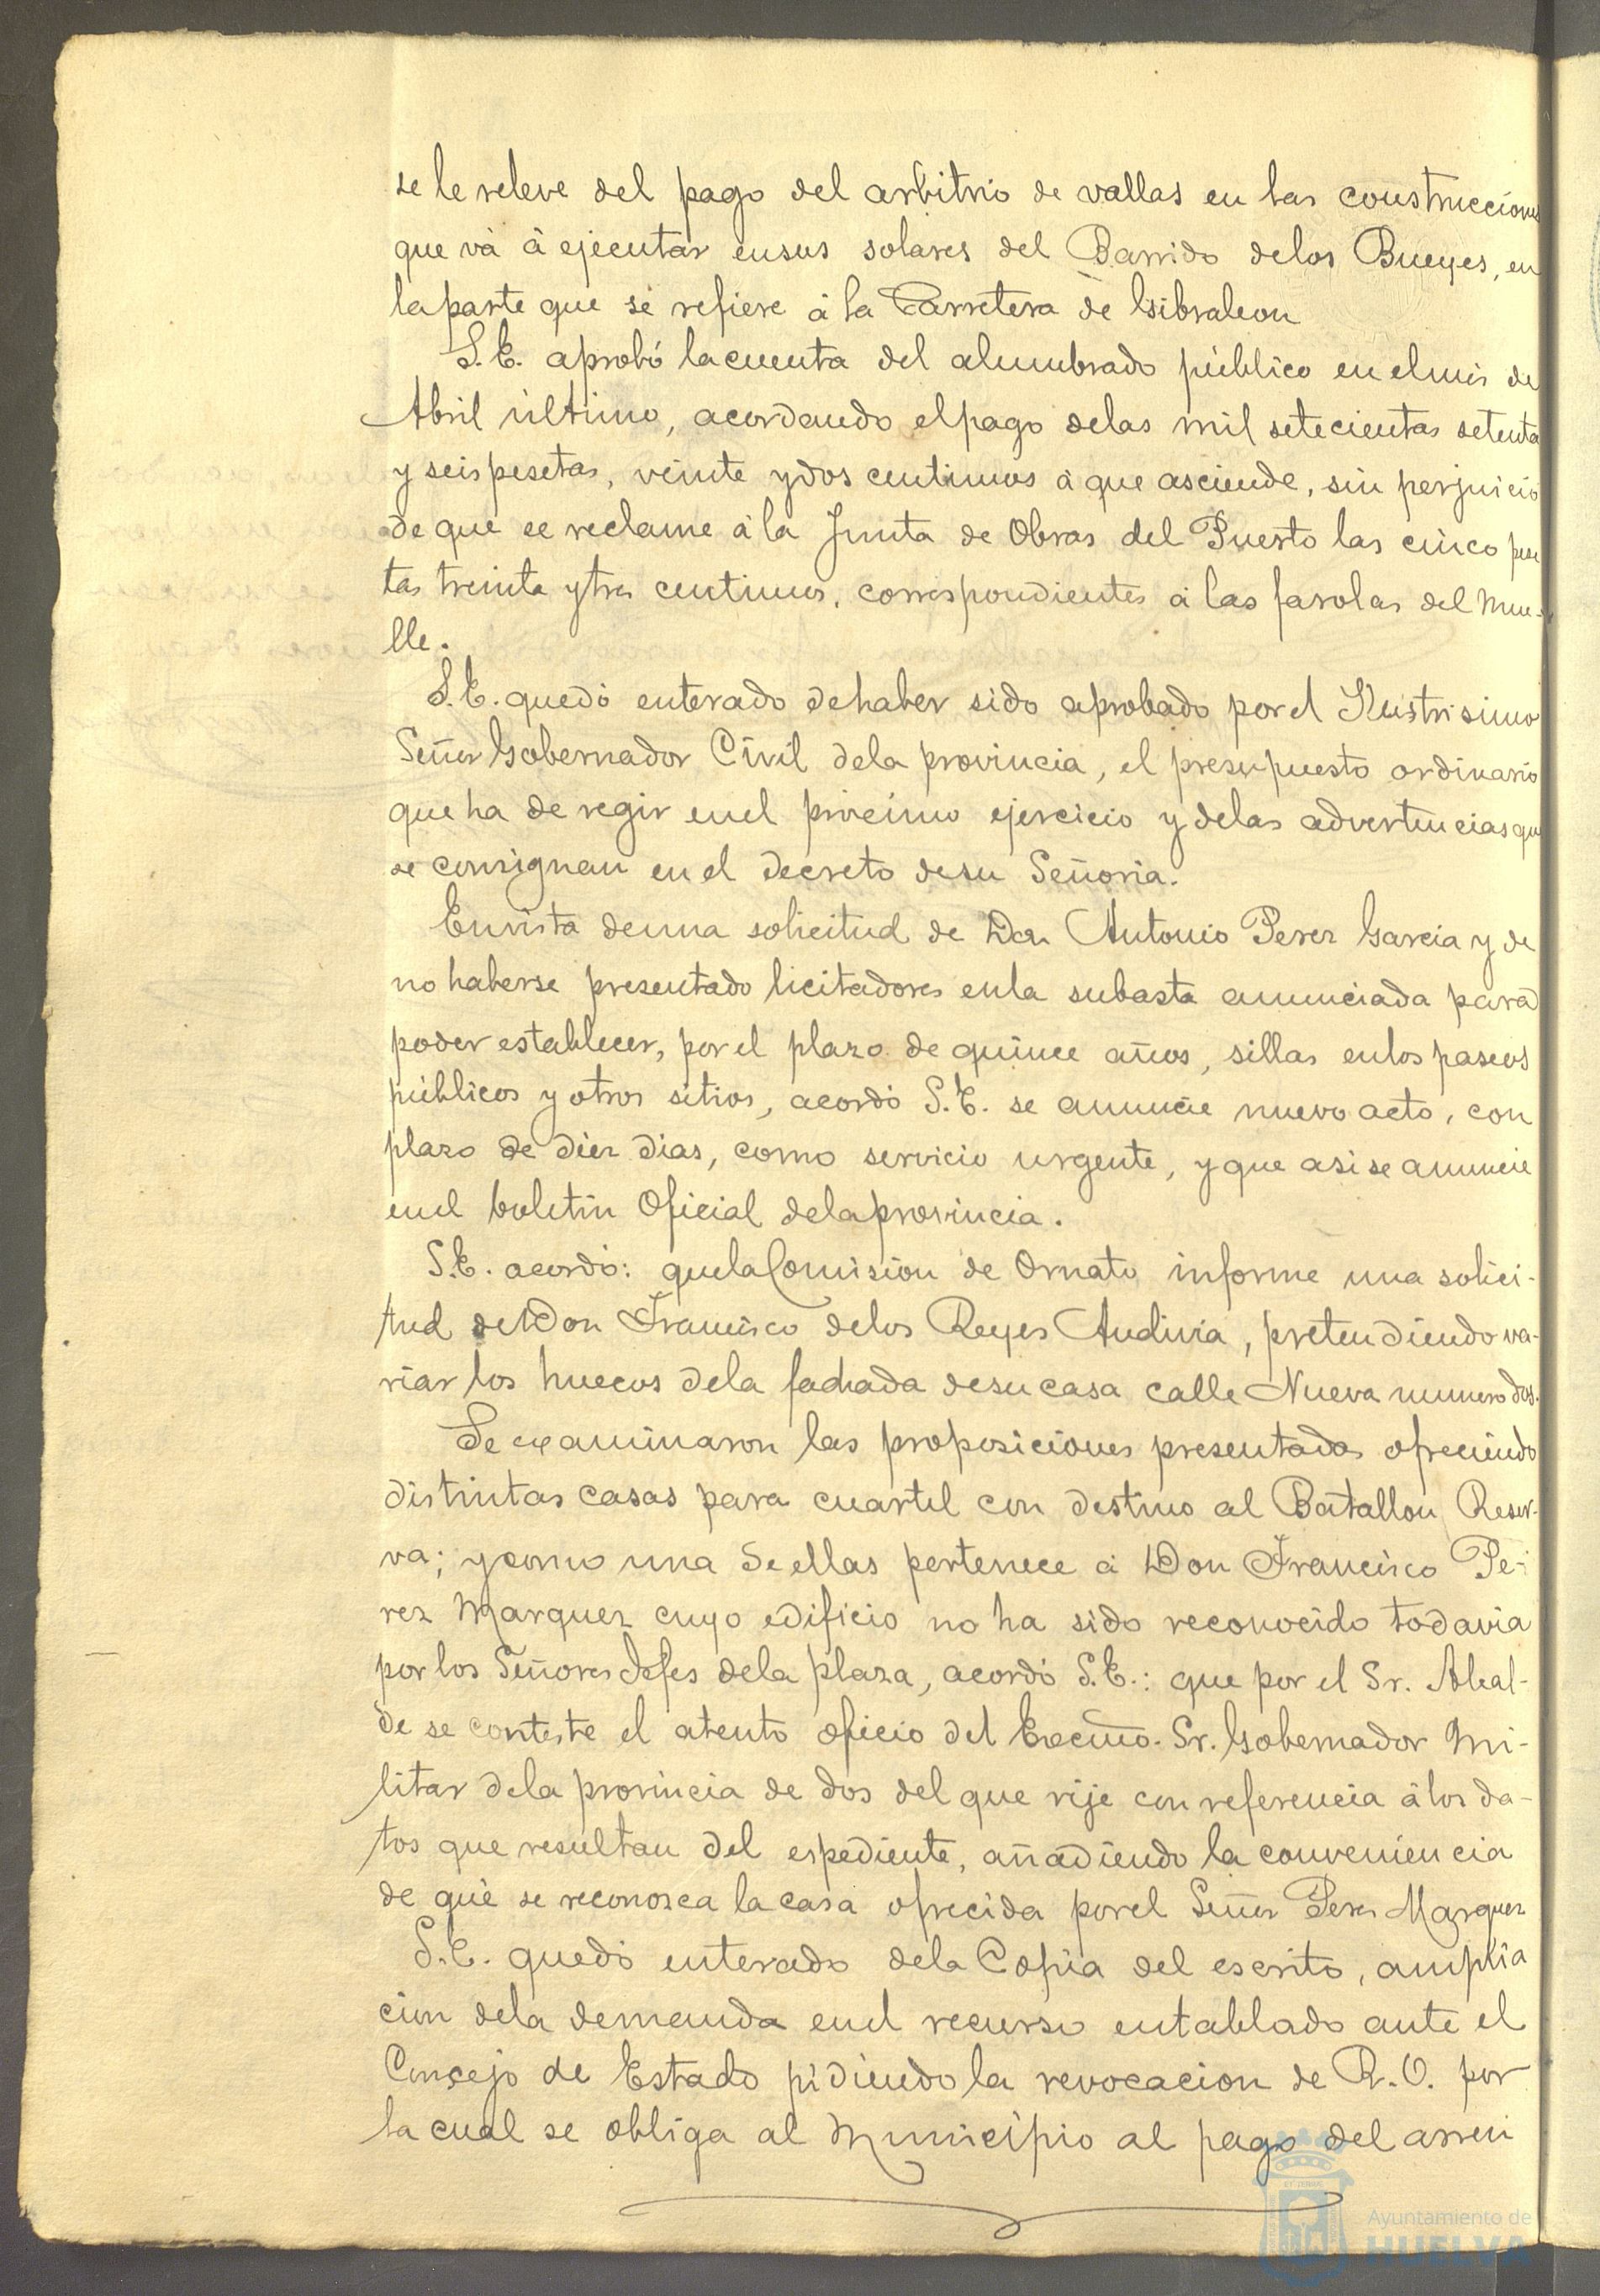 se le releve del pago del arbitrio de vallas en las construcciones
que vá á ejecutar en sus solares del Barrido de los Bueyes, en
la parte que se refiere á la Carretera de Gibraleon
S.E. aprobó la cuenta del alumbrado público en el mes de
Abril último, acordando el pago de las mil setecientas setenta
y seis pesetas, veinte y dos centimos á que asciende, sin perjuicio
de que se reclame á la Junta de Obras del Puerto las cinco pese
tas treinta y tres centimos, correspondientes á las farolas del Mue-
lle.
S.E. quedó enterado de haber sido aprobado por el Ilustrisimo
Señor Gobernador Civil de la provincia, el presupuesto ordinario
que ha de regir en el próximo ejercicio y de las advertencias que
se consignan en el decreto de su Señoria.
En vista de una solicitud de Don Antonio Perez Garcia y de
no haberse presentado licitadores en la subasta anunciada para
poder establecer, por el plazo de quince años, sillas en los paseos
públicos y otros sitios, acordó S.E. se anuncie nuevo acto, con
plazo de diez dias, como servicio urgente, y que asi se anuncie
en el boletin Oficial de la provincia.
S.E. acordó: que la Comision de Ornato informe una solici-
tud de Don Francisco de los Reyes Audivia, pretendiendo va-
riar los huecos de la fachada de su casa calle Nueva numero dos.
Se examinaron las proposiciones presentadas ofreciendo
distintas casas para cuartel con destino al Batallon Reser-
va; y como una de ellas pertenece á Don Francisco Pe-
rez Marquez cuyo edificio no ha sido reconocido todavia
por los Señores Jefes de la plaza, acordó S.E.: que por el Sr. Alcal-
de se conteste el atento oficio del Excmo. Sr. Gobernador Mi-
litar de la provincia de dos del que rije con referencia á los da-
tos que resultan del espediente, añadiendo la conveniencia
de que se reconozca la casa ofrecida por el Señor Perez Marquez
S.E. quedó enterado de la Copia del escrito, amplia
cion de la demanda en el recurso entablado ante el
Consejo de Estado pidiendo la revocacion de R.O. por
la cual se obliga al Municipio al pago del arren
Ayuntamiento de
HUELVA